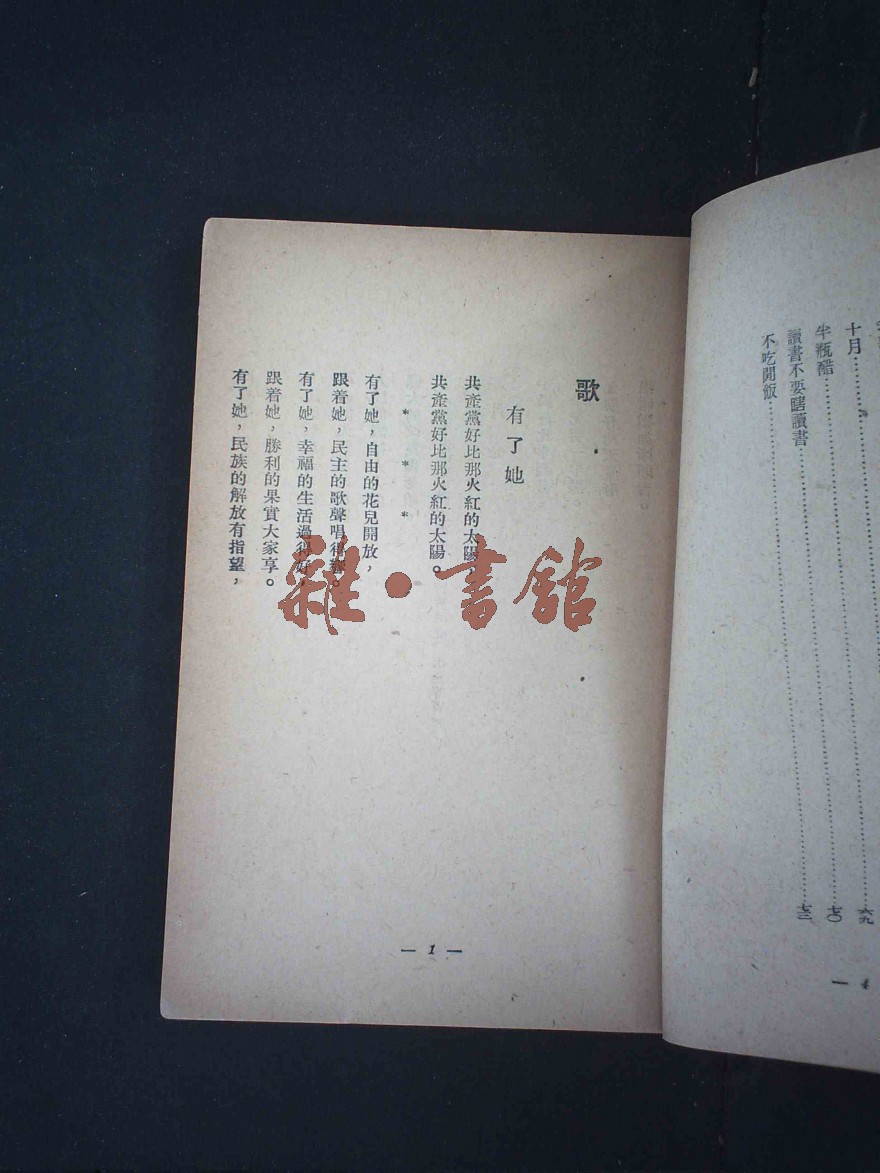 十月
六九
半瓶醋
七〇
讀書不要瞎讀書
不吃閒飯
七三
— 4
歌
有了她
共產黨好比那火紅的太陽，
共產黨好比那火紅的太陽。
* * *
有了她，自由的花兒開放，
跟着她，民主的歌聲唱得響。
有了她，幸福的生活過得好，
跟着她，勝利的果實大家享。
有了她，民族的解放有指望，
— 1 —
雜·書館